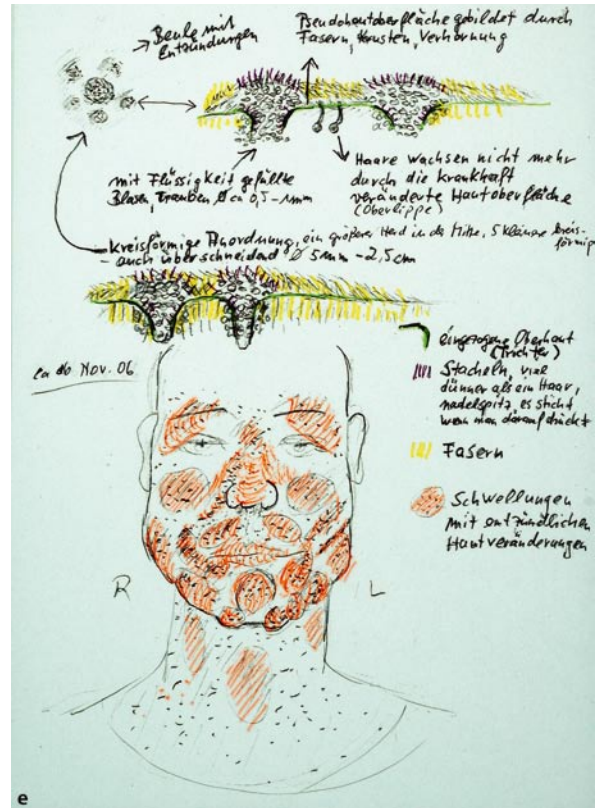 Beule mit
Entzündungen
Pseudohautoberfläche gebildet durch
Fasern, Krusten, Verhornung
mit Flüssigkeit gefüllte
Blasen, Trauben Ø ca 0,5-1mm
Haare wachsen nicht mehr
durch die krankhaft
veränderte Hautoberfläche
(Oberlippe)
Kreisförmige Anordnung, ein größerer Herd in der Mitte, 5 kleinere kreisförmig
- auch überschneidend Ø 5mm - 2,5cm
ca ab Nov. 06
eingezogene Oberhaut
(Trichter)
Stacheln, viel
dünner als ein Haar,
nadelspitz, es sticht
wenn man darauf drückt
Fasern
Schwellungen
mit entzündlichen
Hautveränderungen
R
L
e